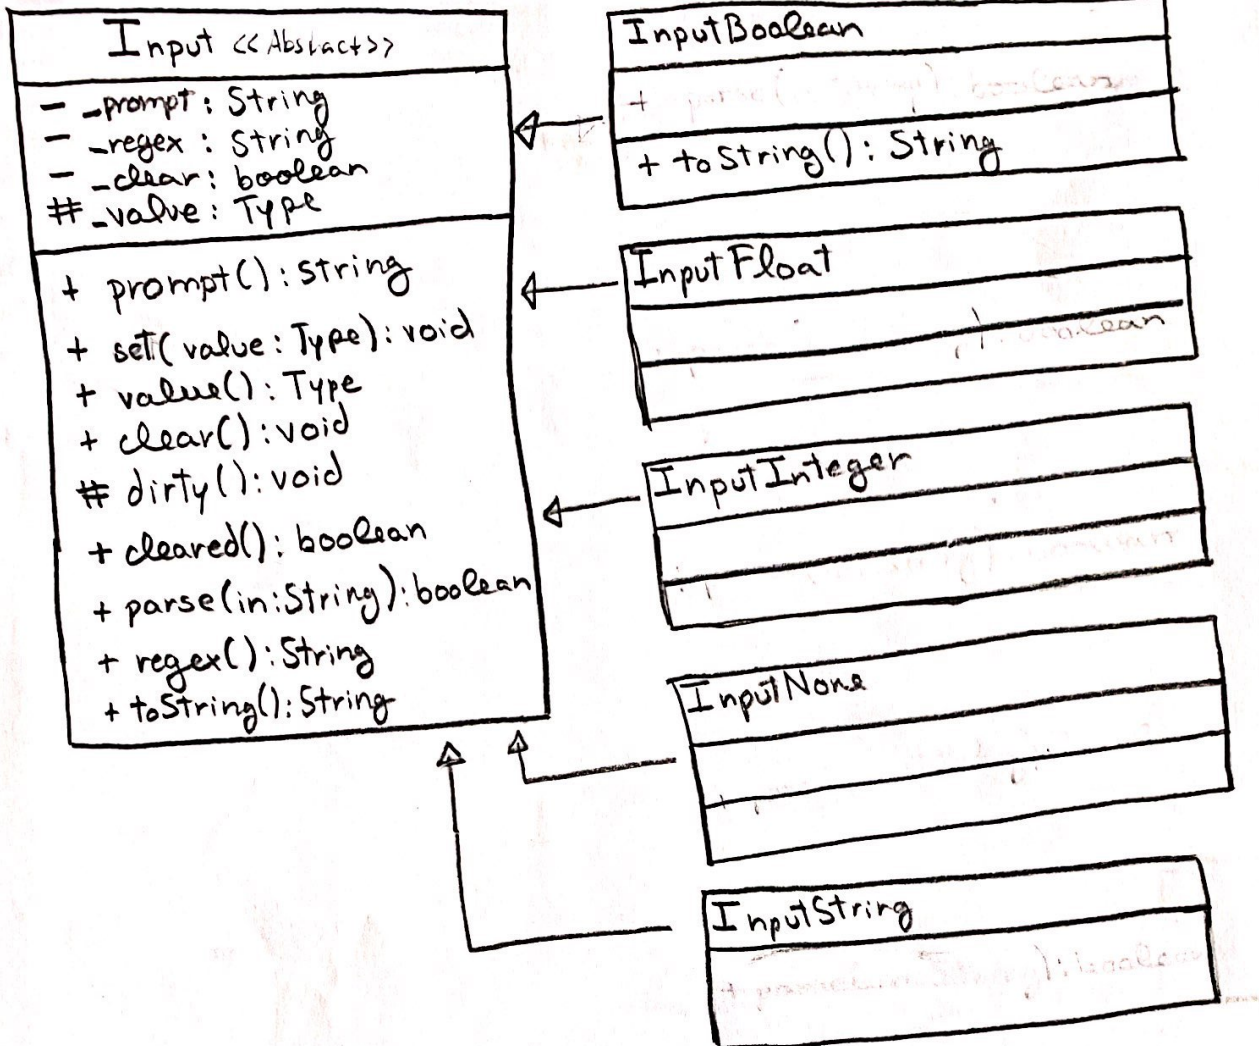 Input <<Abstact>>
- _prompt: String
- _regex: String
- _clear: boolean
# _value: Type
+ prompt(): String
+ set(value: Type): void
+ value(): Type
+ clear(): void
# dirty(): void
+ cleared(): boolean
+ parse(in:String): boolean
+ regex(): String
+ toString(): String
InputBoolean
+
+ toString(): String
InputFloat
boolean
InputInteger
InputNone
InputString